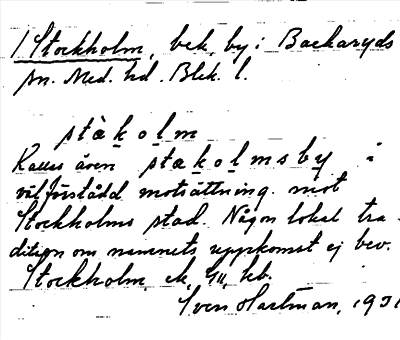 1 Stockholm, bek. by i Backaryds
sn. Med. hd. Blek. l.
stàkolm
Kallas även stakolmsby i
välförstådd motsättning mot
Stockholms stad. Någon lokal tra-
dition om namnets uppkomst ej bev.
Stockholm, kb.
Sven Hartman, 193